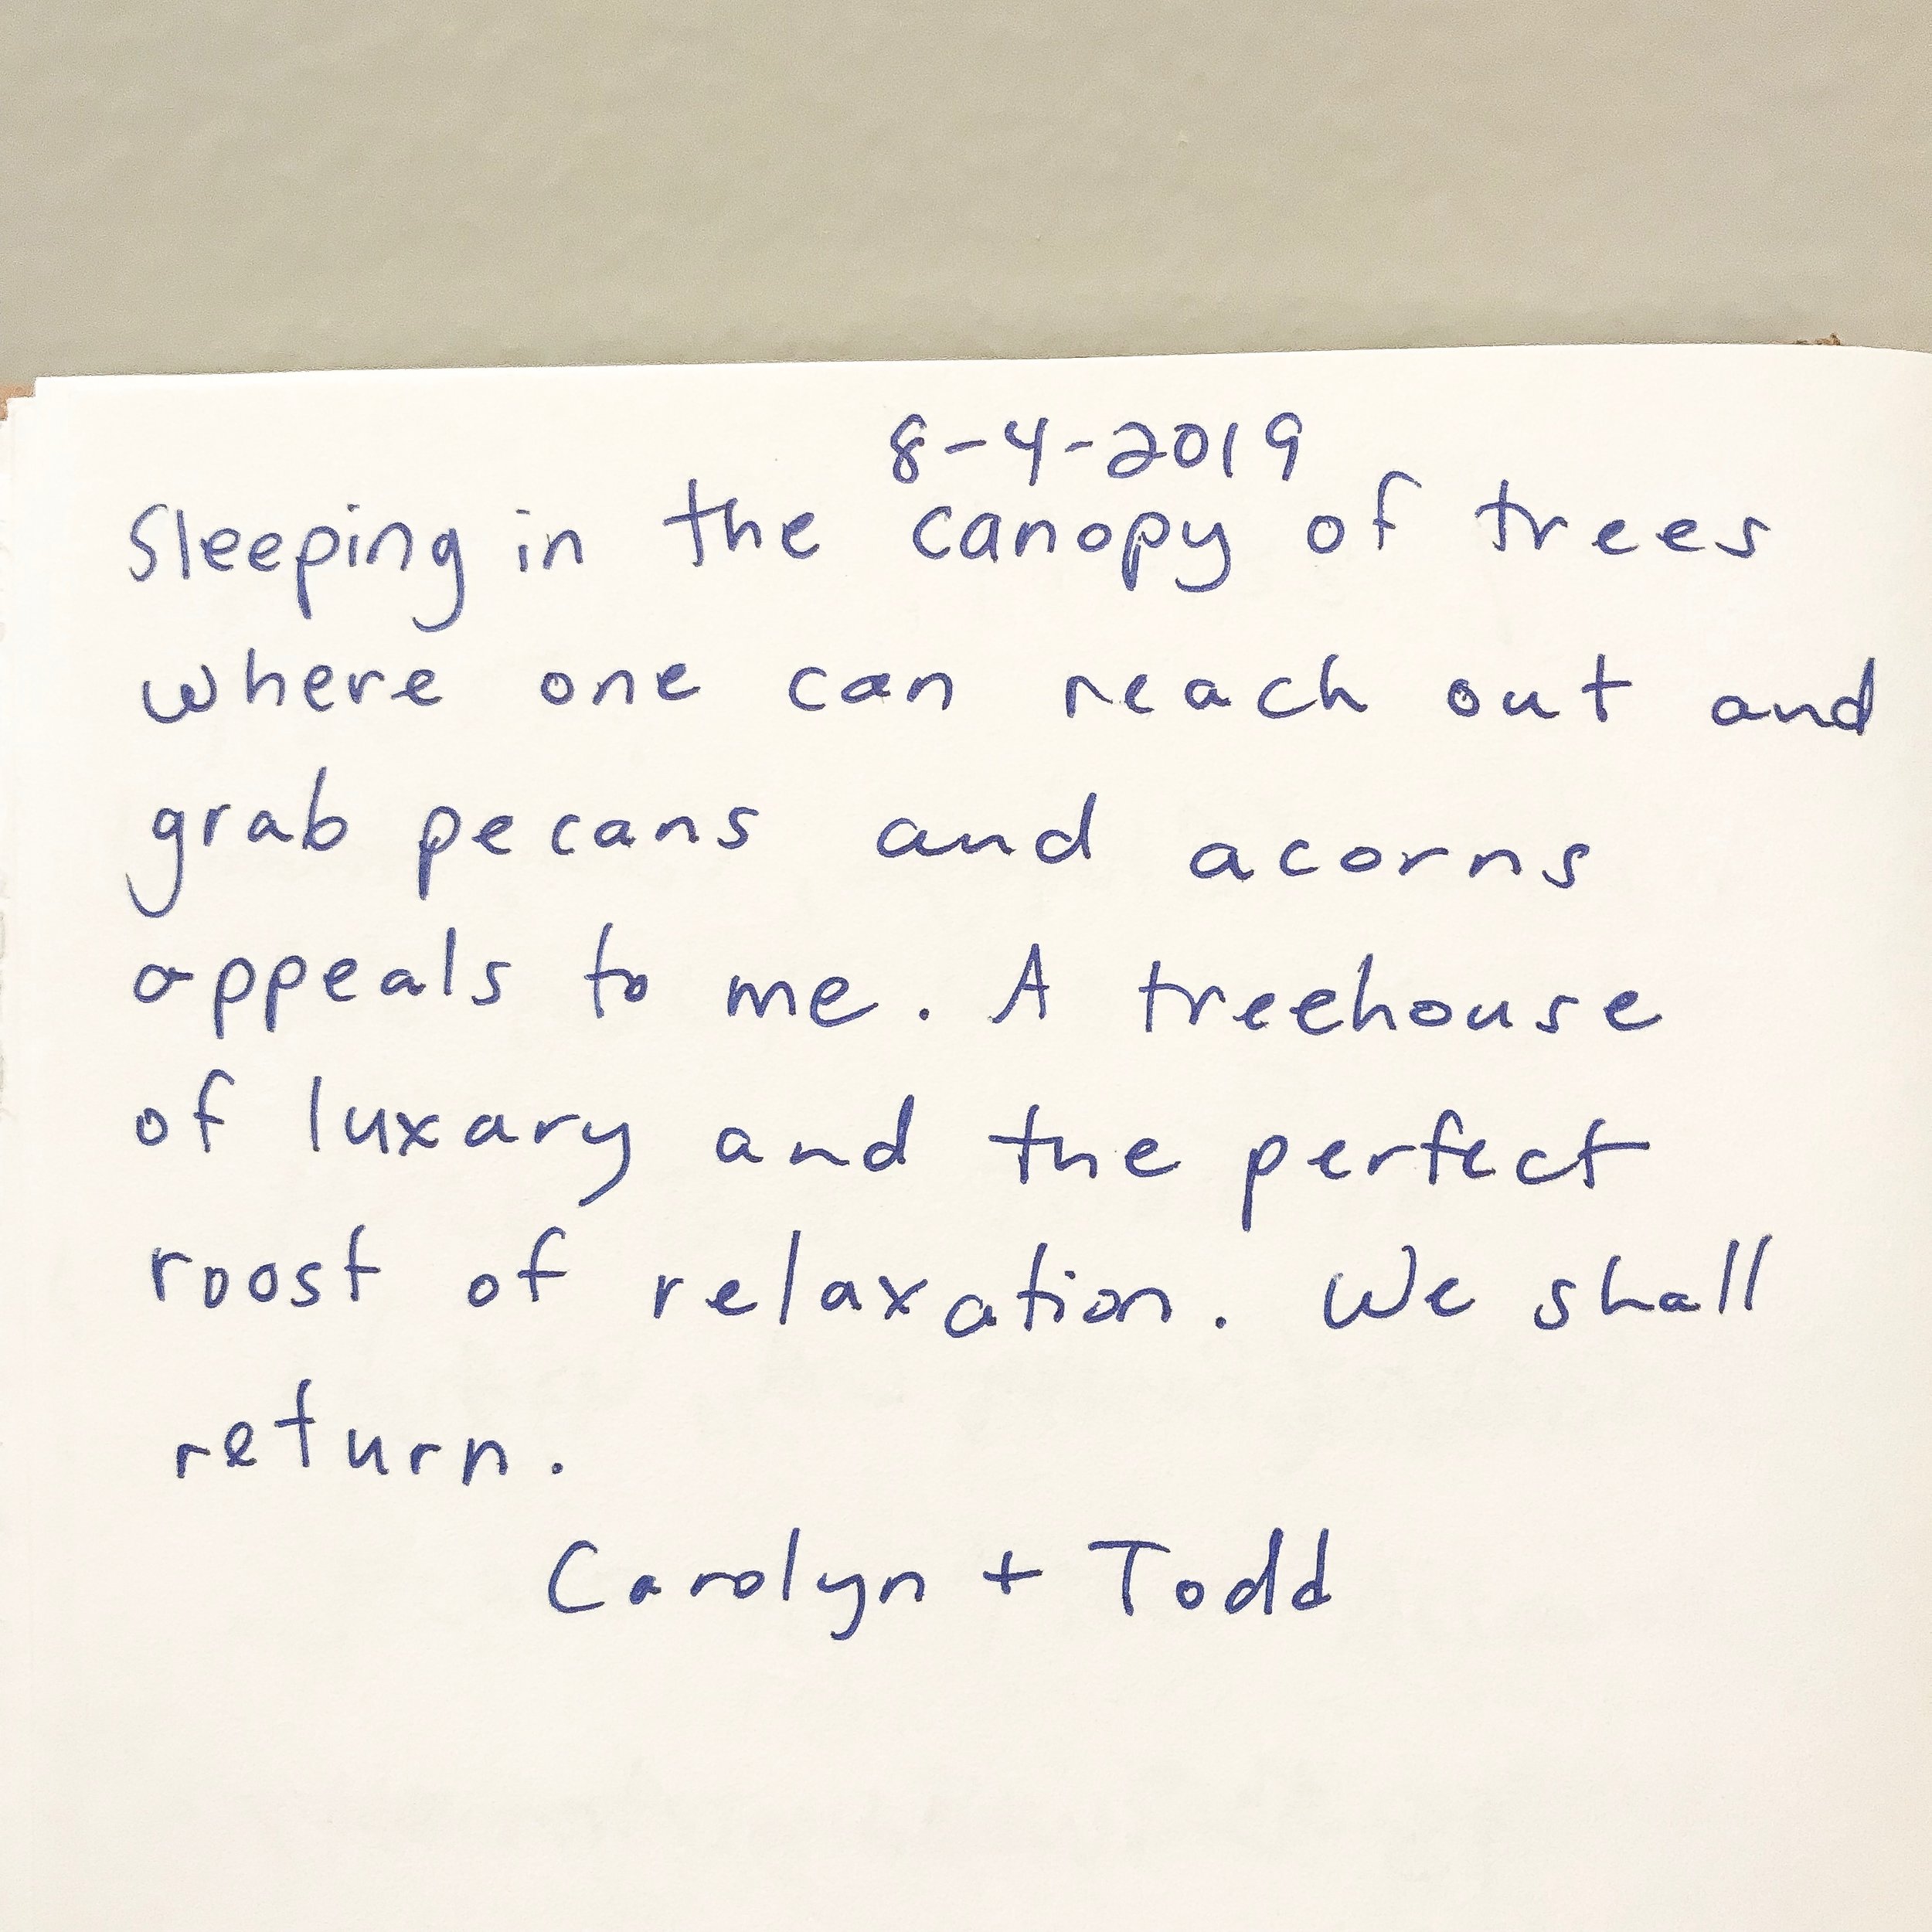 8-4-2019
Sleeping in the canopy of trees
where one can reach out and
grab pecans and acorns
appeals to me. A treehouse
of luxary and the perfect
roost of relaxation. We shall
return.
Carolyn + Todd